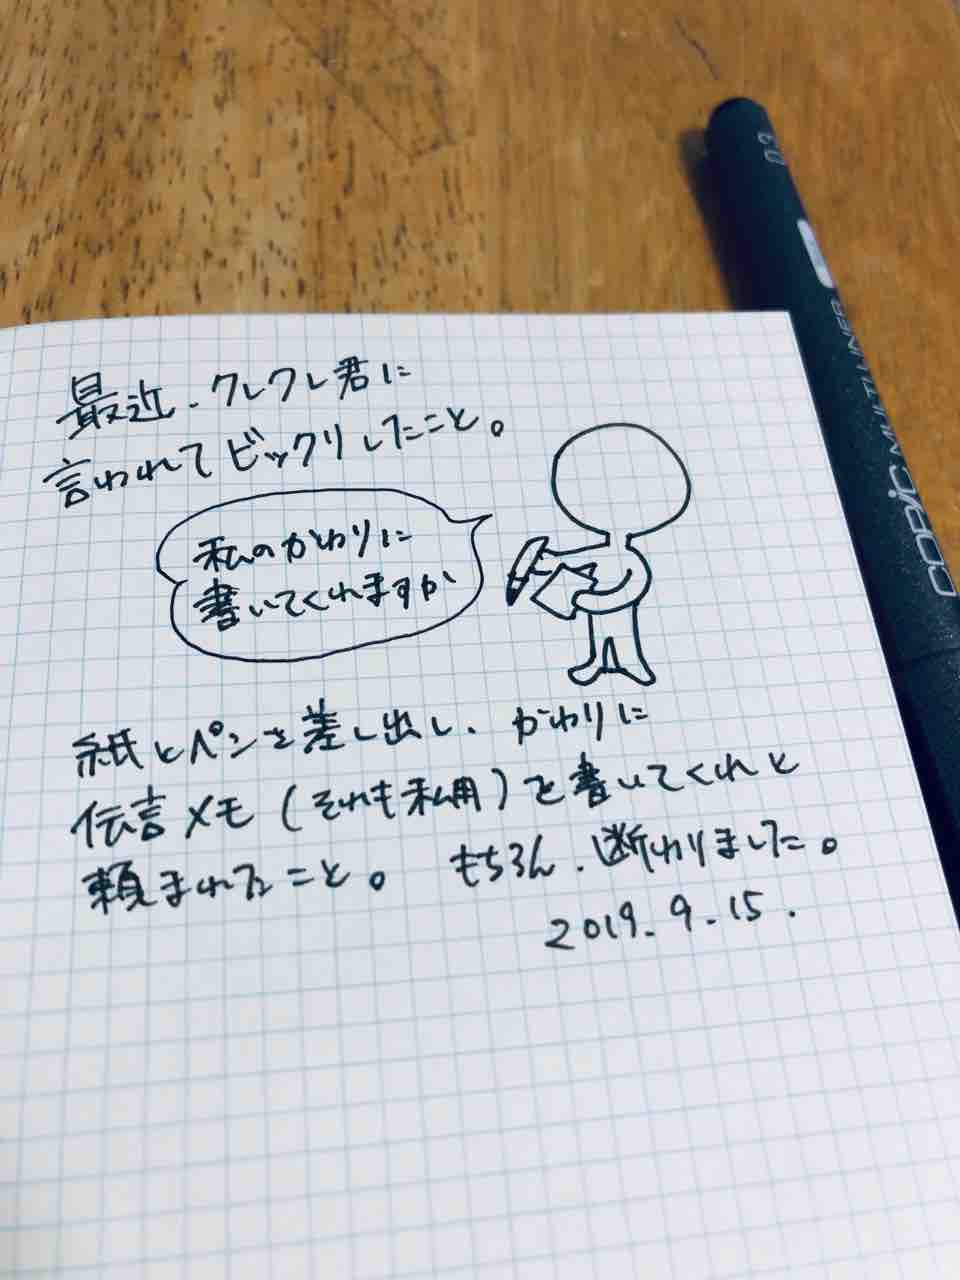 最近、クレクレ君に
言われてビックリしたこと。
私のかわりに
書いてくれますか
紙とペンを差し出し、かわりに
伝言メモ(それも私用)を書いてくれと
頼まれたこと。 もちろん、断わりました。
2019.9.15.
COPIC MULTILINER
0.3